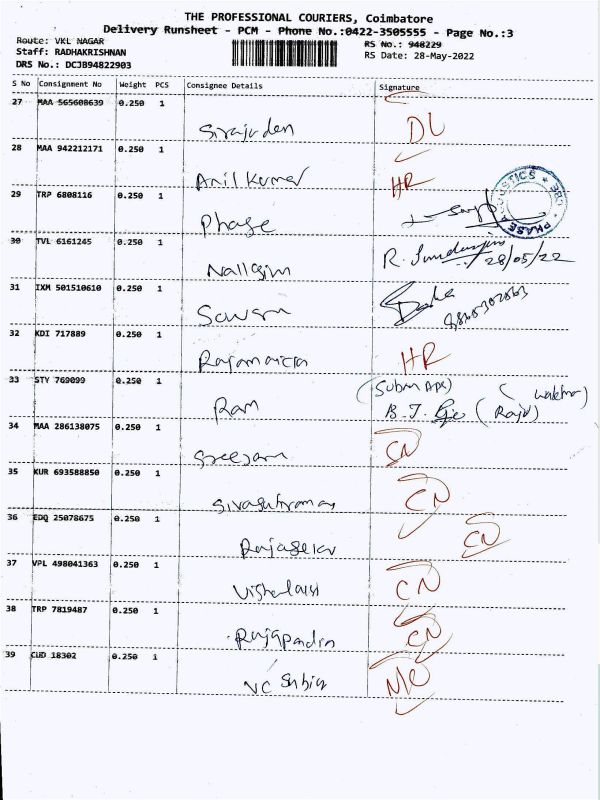 THE PROFESSIONAL COURIERS, Coimbatore
Delivery Runsheet - PCM - Phone No.:0422-3505555 - Page No.:3
Route: VKL NAGAR RS No.: 948229
Staff: RADHAKRISHNAN RS Date: 28-May-2022
DRS No.: DCJB94822903
S No Consignment No Weight PCS Consignee Details Signature
27 MAA 565608639 0.250 1
Sirajuden DL
28 MAA 942212171 0.250 1
Anil Kumar HR
29 TRP 6808116 0.250 1
Phase
PHASE ACOUSTICS CBE
30 TVL 6161245 0.250 1
R. 28/05/22
31 IXM 501510610 0.250 1
32 KDI 717889 0.250 1
HR
33 STY 769099 0.250 1
Ram B.J. (Raju)
34 MAA 286138075 0.250 1
Sreeram CN
35 KUR 693588850 0.250 1
CN
36 EDQ 25078675 0.250 1
Rajasekar CN
37 VPL 498041363 0.250 1
CN
38 TRP 7819487 0.250 1
CN
39 CUD 18302 0.250 1
VC